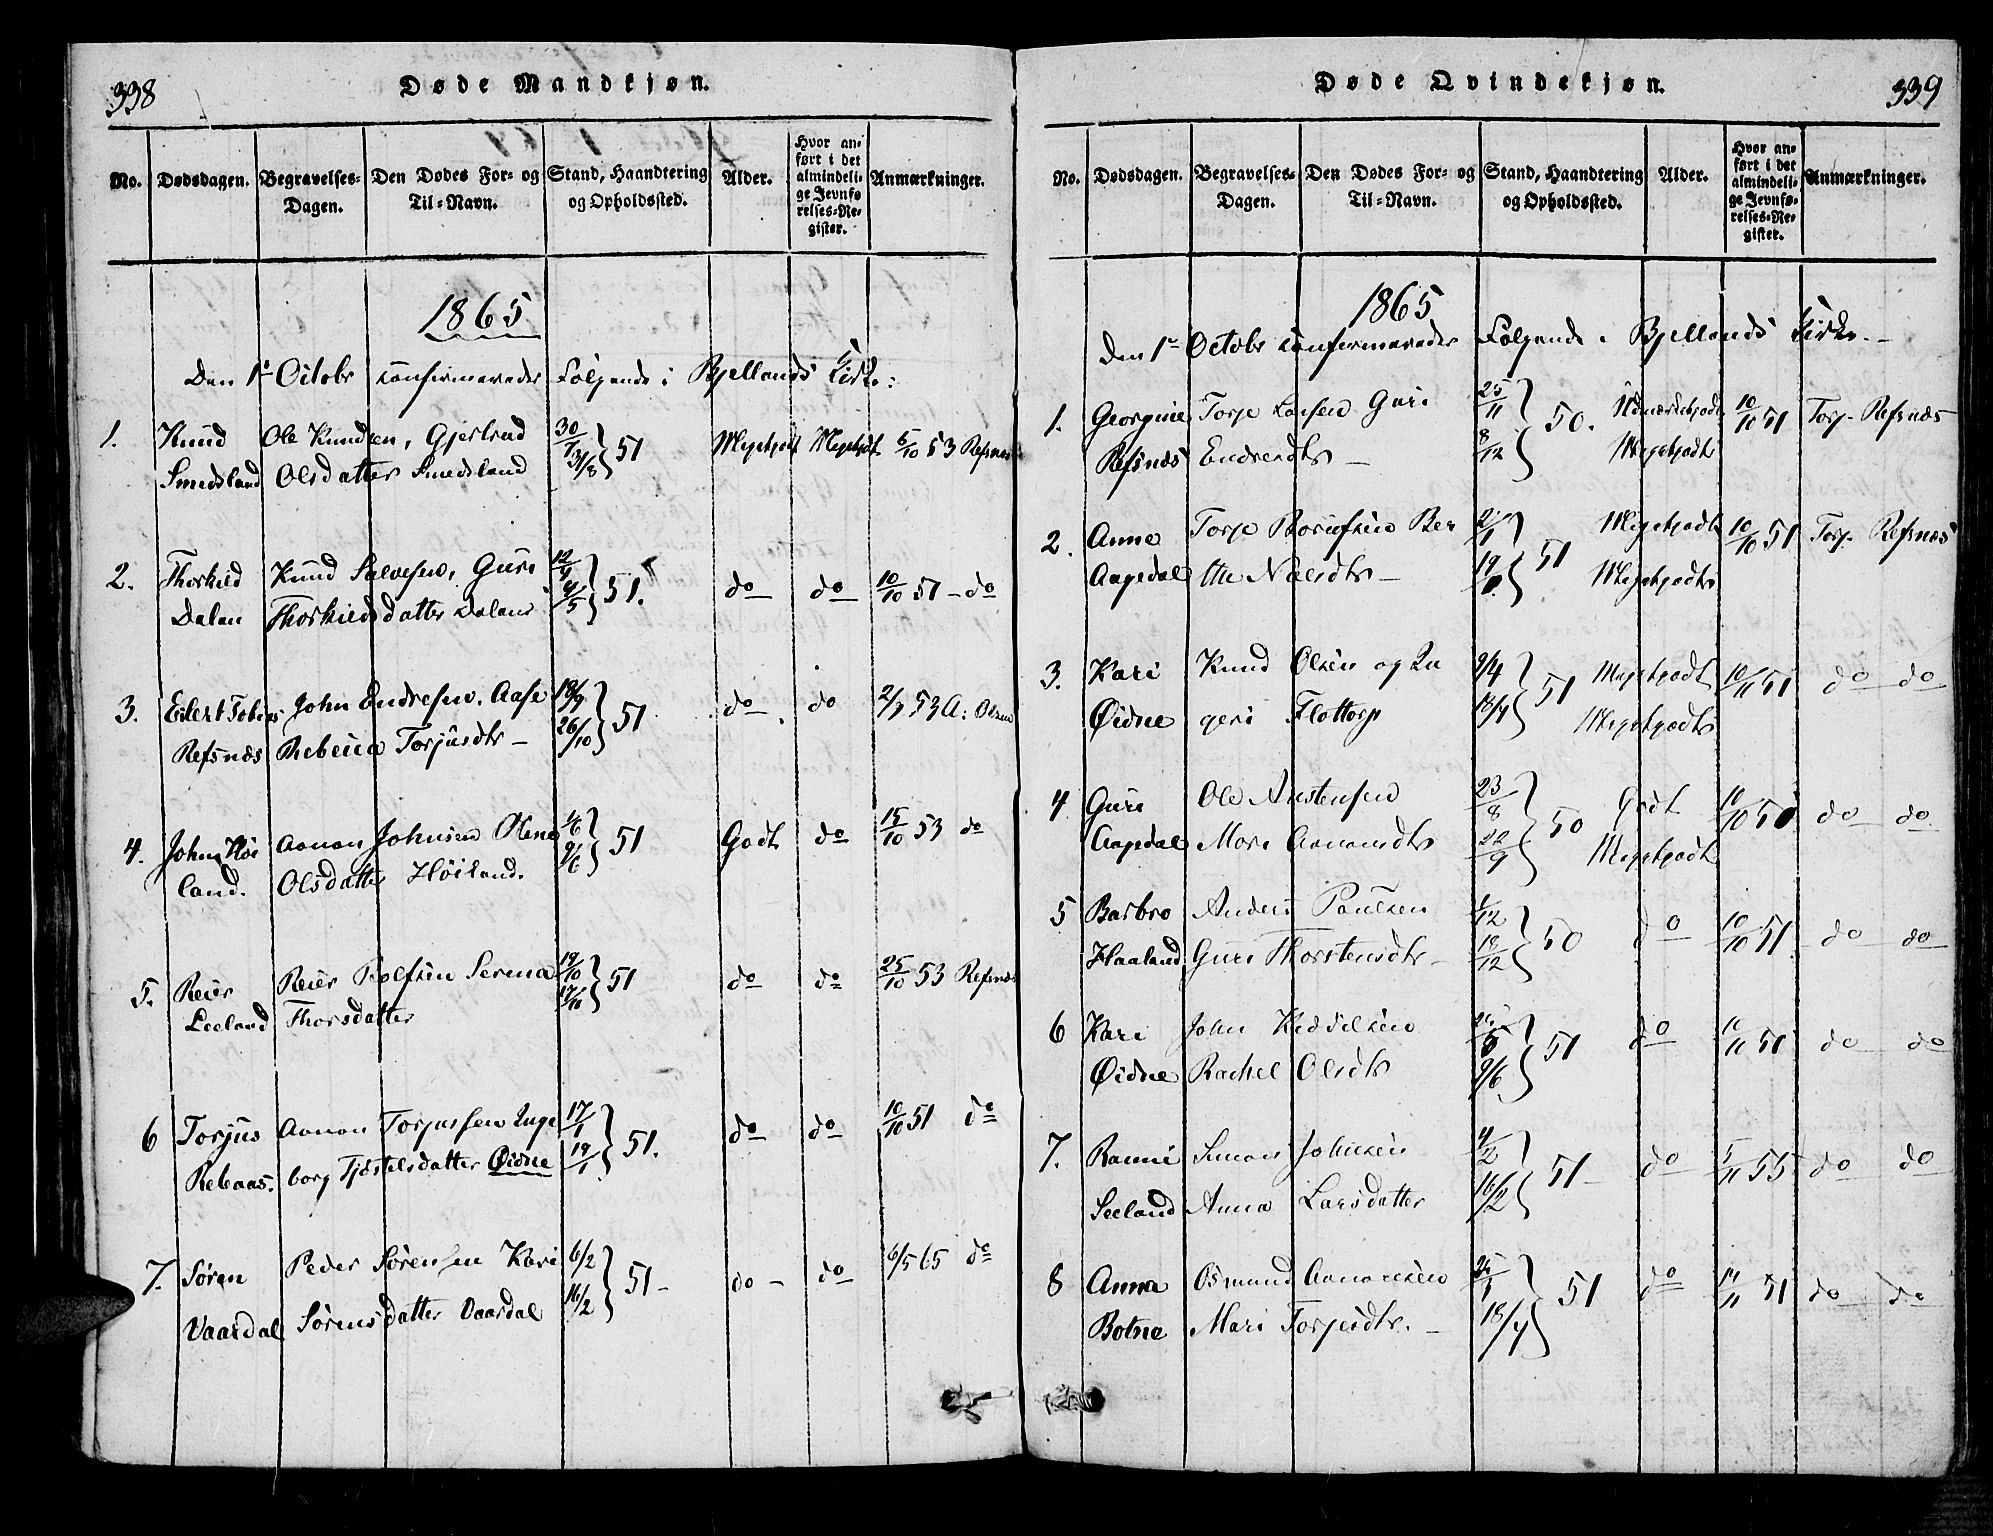 338
Døde Mandkjøn.
No. Dødsdagen. Begravelses-Dagen. Den Dødes For- og Til-Navn. Stand, Haandtering og Opholdssted. Alder. Hvor anført i det almindelige Jevnførelses-Register. Anmærkninger.
1865
Den 1ste Octobr confirmeredes Følgende i Bjellands Kirke:
1. Knud Ole Knudsen, Gjertrud 30/7 51 Megetgodt Megetgodt 5/10 53 Refsnæs
Smedsland Olsdatter Smedsland 31/8
2. Thorkild Knud Salvesen, Guri 12/4 51. do do 10/10 51 - do
Dalan Thorkildsdatter Dalane /5
3. Eilert Tobias John Endresen. Aase 18/9 51 do do 2/7 53 A: Olsen
Refsnæs Rebecca Torjusdtr - 26/10
4. John Høi Aanon Johnsen Olene 51 Godt do 15/10 53 do
land. Olsdatter Høiland. 9/6
5. Reier Reier Rolfsen Serina 19/10 51 do do 25/10 53 Refsnæs
Leeland Thorsdatter
6 Torjus Aanon Torjussen Inge 17/1 51. do do 10/10 51 do
Rebaas. borg Tjøstelsdatter Øidne 19/1
7. Søren Peder Sørensen Kari 6/2 51 - do - do 6/5 65 do
Vaardal Sørensdatter Vaardal 16/2
339
Døde Qvindekjøn.
No. Dødsdagen. Begravelses-Dagen. Den Dødes For- og Til-Navn. Stand, Haandtering og Opholdssted. Alder. Hvor anført i det almindelige Jevnførelses-Register. Anmærkninger.
1865
Den 1ste Octobr confirmeredes Følgende i Bjellands Kirke. -
1. Georgine Torje Larsen Guri 25/11 50. Udmærketgodt 10/10 51 Torj. Refsnæs
Refsnæs Endresdtr - 8/12 Megetgodt
2. Anne Torje Ber 51 Megetgodt 10/10 51 Torj. Refsnæs
Aagedal tte Nilsdtr - Megetgodt
3. Kari Knud Olsen og In 9/4 51 Megetgodt 10/11 51 do do
Øidne geri Flottorp 18/4 Megetgodt
4 Guri Ole Austensen 23/8 50 Godt do do
Aagedal Mari Aanonsdtr 22/9 Megetgodt
5 Barbro Anders Poulsen 1/12 50 do 10/10 51 do do
Haaland Guri Thorstensdtr - 18/12
6 Kari John Keddelsen 51 do 51 do do
Øidne Rachel Olsdtr 9/6
7. Ranni Simon Johnsen 4/2 51 - do 5/11 55 do do
Leeland Anna Larsdatter 16/2
8 Anna Osmund Aanensen 51 do 51 do do
Botne Mari Torjusdtr. - 18/4